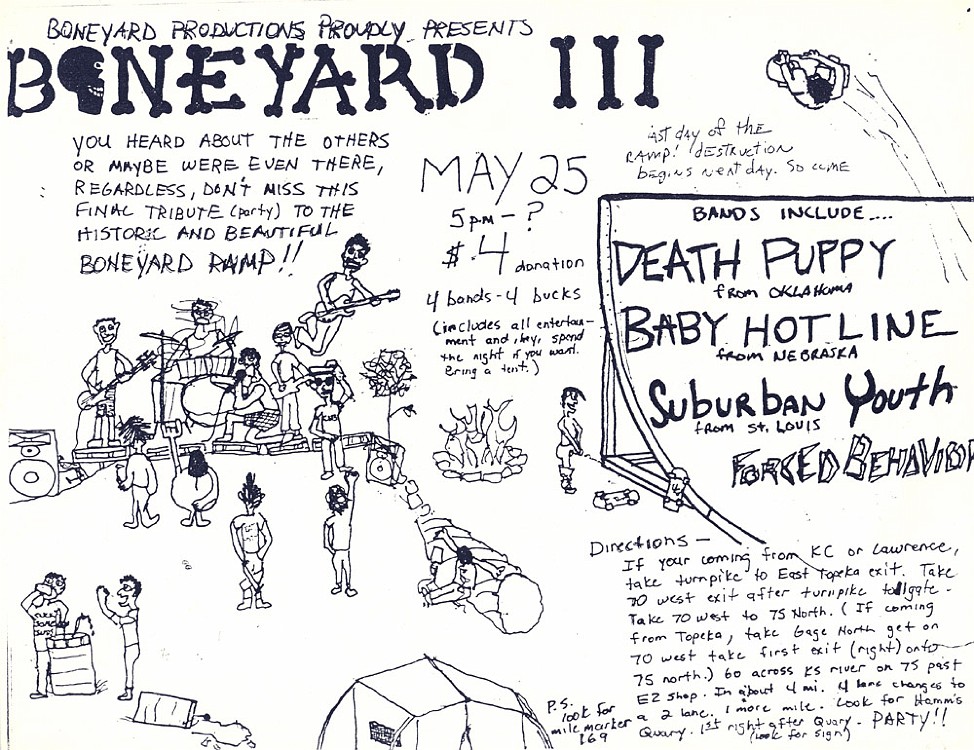 BONEYARD PRODUCTIONS PROUDLY PRESENTS
BONEYARD III
YOU HEARD ABOUT THE OTHERS
OR MAYBE WERE EVEN THERE,
REGARDLESS, DON'T MISS THIS
FINAL TRIBUTE (party) TO THE
HISTORIC AND BEAUTIFUL
BONEYARD RAMP!!
MAY 25
5 pm - ?
$.4 donation
4 bands - 4 bucks
(includes all entertain-
ment and, hey, spend
the night if you want.
Bring a tent.)
last day of the
RAMP! DESTRUCTION
begins next day. So come
BANDS INCLUDE....
DEATH PUPPY
from OKLAHOMA
BABY HOTLINE
from NEBRASKA
Suburban Youth
from St. LOUIS
FORCED BEHAVIOR
Directions -
If your coming from KC or Lawrence,
take turnpike to East Topeka exit. Take
70 west exit after turnpike tollgate.
Take 70 west to 75 North. (If coming
from Topeka, take Gage North get on
70 west take first exit (right) onto
75 north.) Go across KS river on 75 past
EZ shop. In about 4 mi. 4 lane changes to
a 2 lane. 1 more mile. Look for Hamm's
Quary. 1st right after Quary. PARTY!!
(look for sign)
P.S.
look for
mile marker
169